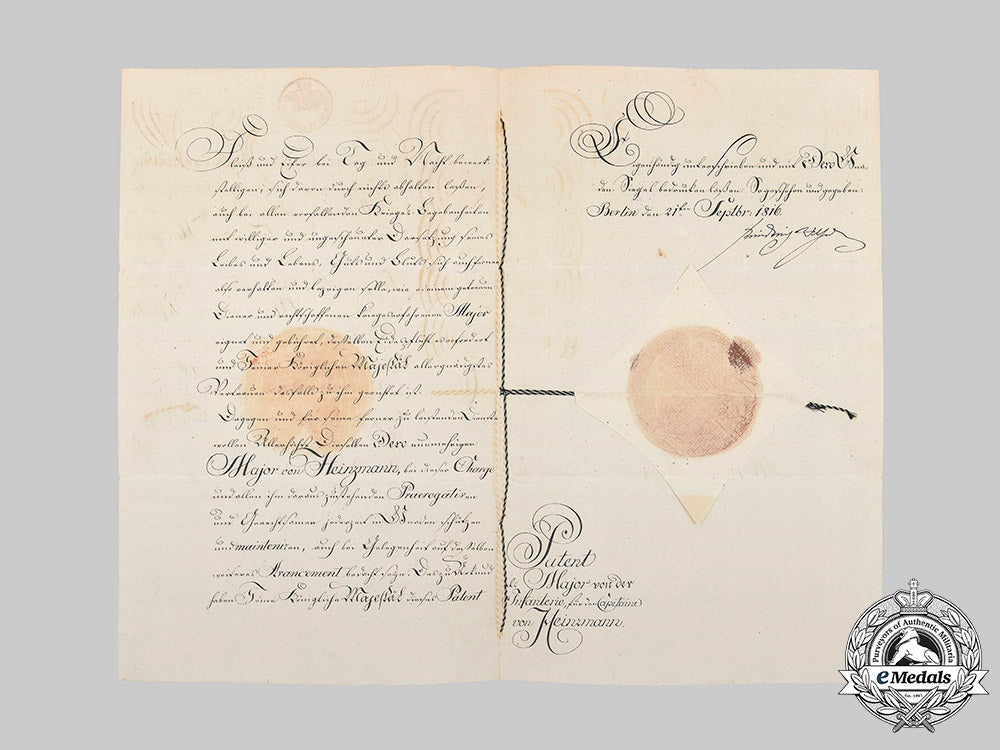 Fleiß und Eifer bei Tag und Nacht bewerk
stelligen, sich davon durch nichts abhalten laßen,
auch bei allen vorfallenden Krieges Begebenheiten
mit williger und ungescheuter Darsetzung seines
Leibes und Lebens, Guts und Bluts sich auch
also verhalten und bezeigen solle, wie einem getreuen
Diener und rechtschaffenen kriegeserfahrenen Major
eignet und gebühret, deßelben Eides Pflicht erfordert
und Seiner Königlichen Majestät allergnädigstes
Vertrauen desfalls zu ihm gerichtet ist.
Dagegen und für seine ferner zu leistenden Dienste
wollen Allerhöchst Dieselben Dero nunmehrigen
Major von Heinzmann, bei dieser Charge
und allen ihm daraus zustehenden Praerogativen
und Gerechtsamen jederzeit in Gnaden schützen
und mainteniren, auch bei Gelegenheit auf deßelben
weiteres Avancement bedacht seyn. Des zu Urkund
haben Seine Königliche Majestät dieses Patent
Eigenhändig unterschrieben und mit Dero Gna
den Siegel bedrucken laßen. So geschehen und gegeben:
Berlin den 21ten Septbr: 1816.
Patent
als Major von der
Infanterie, für den Capitaine
von Heinzmann.
Purveyors of Authentic Militaria
eMedals